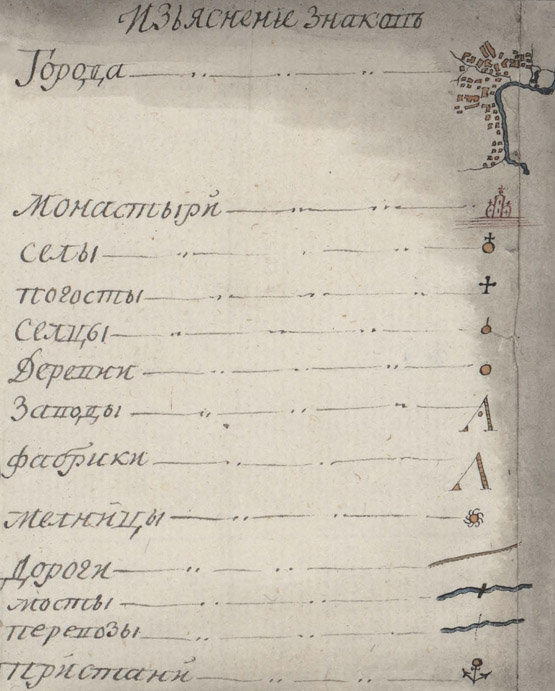 Изъясненіе знаковъ
Города
Монастыри
селы
погосты
Селцы
Деревни
Заводы
фабрики
мелницы
Дороги
мосты
перевозы
Пристани